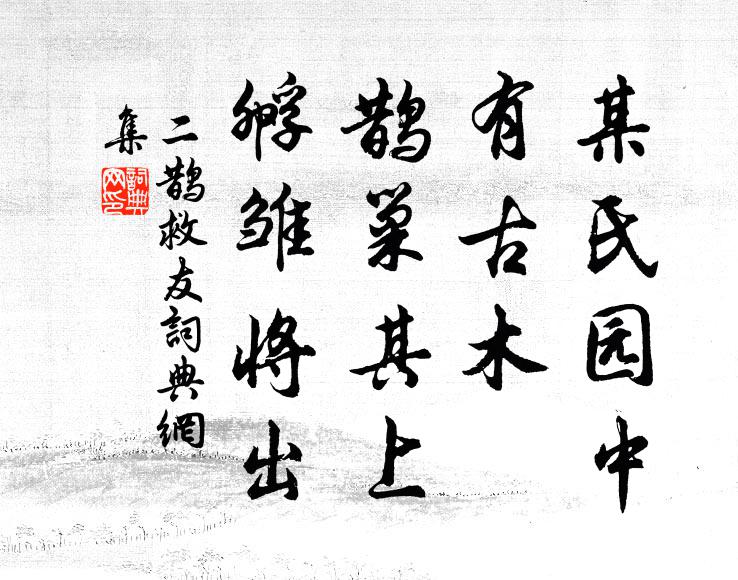 某氏园中
有古木
鹊巢其上
孵雏将出
二鹊救友詞典網
集
詞典
网印